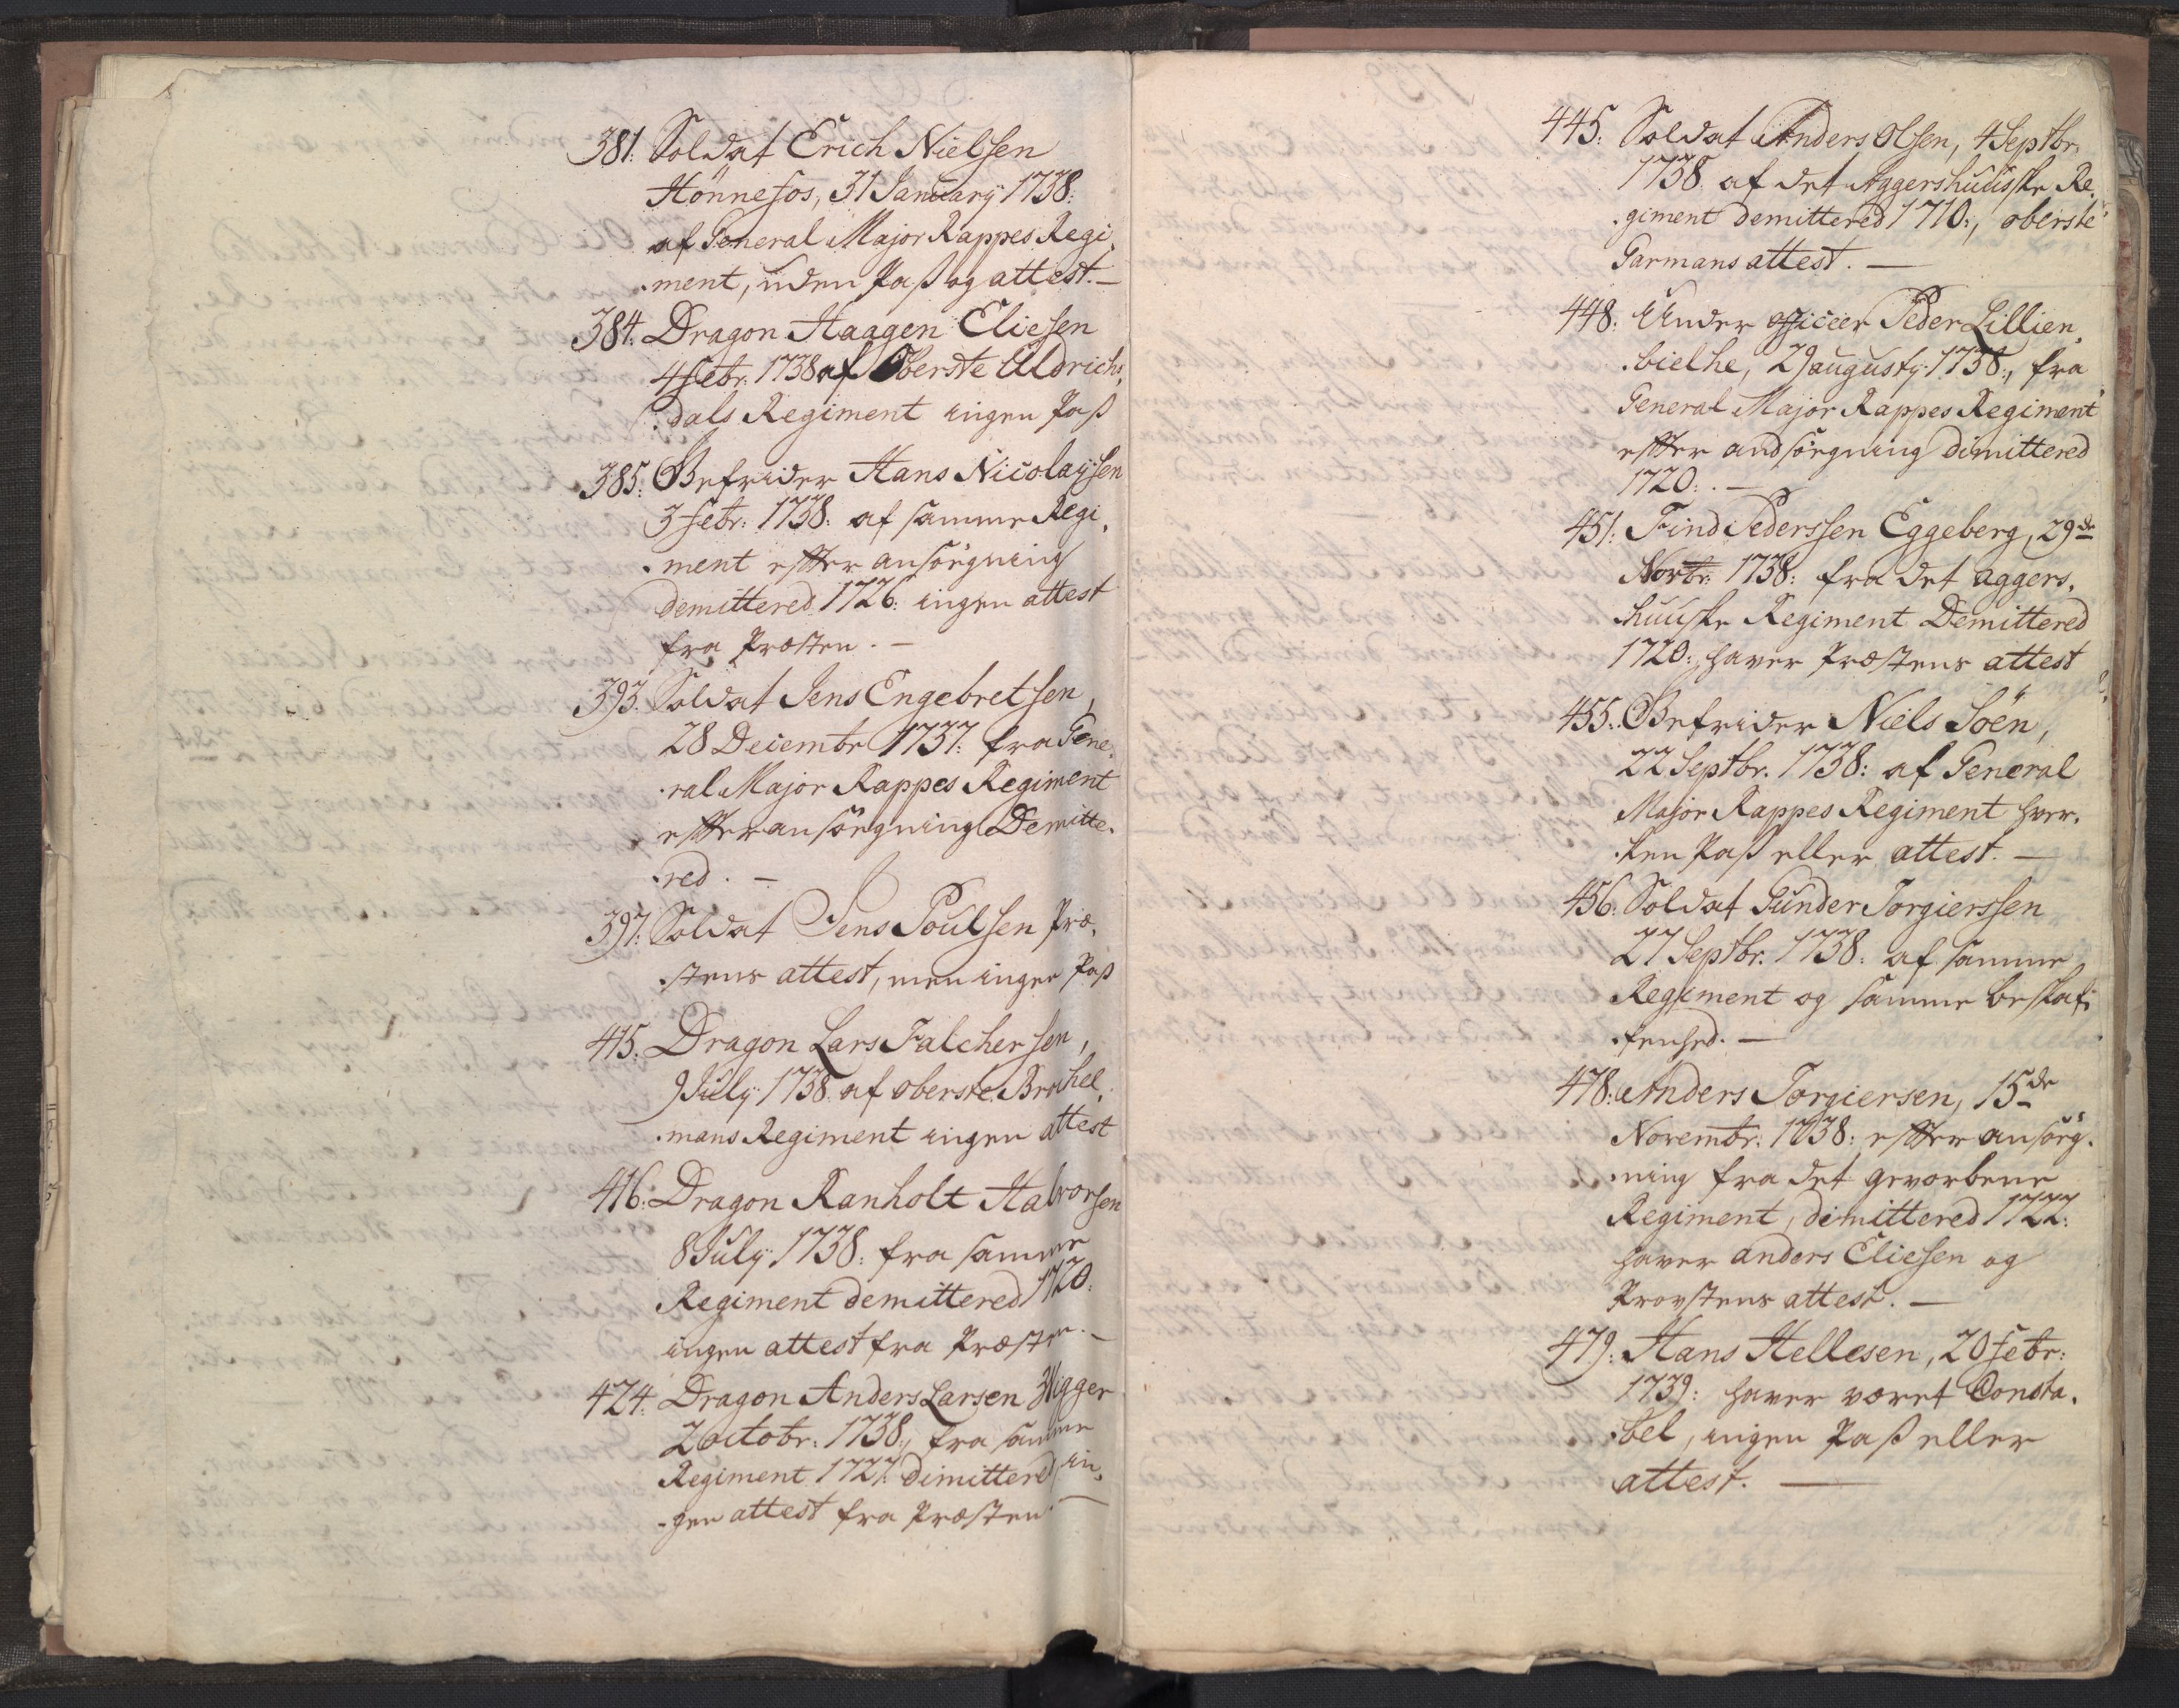 381: Soldat Erich Nielsen
Hönnefos, 31 January 1738:
af General Major Rappes Regi,
.ment, uden Paß og attest. —
384. Dragon Haagen Eliesen
4 febr. 1738 af Oberste Uldrichs,
.dals Regiment ingen Paß
385: Befrider Hans Nicolaysen
3 febr: 1738: af samme Regi,
.ment effter ansögning
demittered 1726: ingen attest
fra Præsten. —
393. Soldat Jens Engebretsen,
28 Decembr 1737: fra Gene,
.ral Major Rappes Regiment
effter ansögning Demitte,
.red. —
397: Soldat Jens Poulsen Præ,
.stens attest, men ingen Paß
415: Dragon Lars Falchersen,
9 July 1738. af oberste Brochel,
.mans Regiment ingen attest
416: Dragon Ranholt Halvorsen
8 July 1738: fra samme
Regiment demittered 1720:
ingen attest fra Præsten. —
424: Dragon Anders Larsen
2 octobr: 1738:, fra samme
Regiment 1727: dimittered in,
.gen attest fra Præsten. —
445: Soldat Anders Olsen, 4 Septbr.
1738. af det Aggershuusske Re,
.giment demittered 1710:, oberste
Garmans attest. —
448: Under officeer Peder Lillien,
.bielke, 29 augusty 1738:, fra
General Major Rappes Regiment
effter andsögning dimittered
1720:. —
451: Find Pederssen Eggeberg, 29de
Novbr: 1738: fra det aggers,
.huuske Regiment Demittered
1720:, haver Præstens attest
455: Befrider Niels Söen,
22 Septbr. 1738: af General
Major Rappes Regiment hver,
.ken Paß eller attest. —
456. Soldat Gunder Torgierssen
27 Septbr. 1738: af samme
Regiment og samme beskaf,
.fenhed. —
478: Anders Torgiersen, 15de
Novembr: 1738: effter ansög,
.ning fra det gevorbene
Regiment, dimittered 1722:
haver anders Eliesen og
Provstens attest. —
479: Hans Hellesen, 20 febr:
1739: haver været Consta,
.bel, ingen Paß eller
attest. —